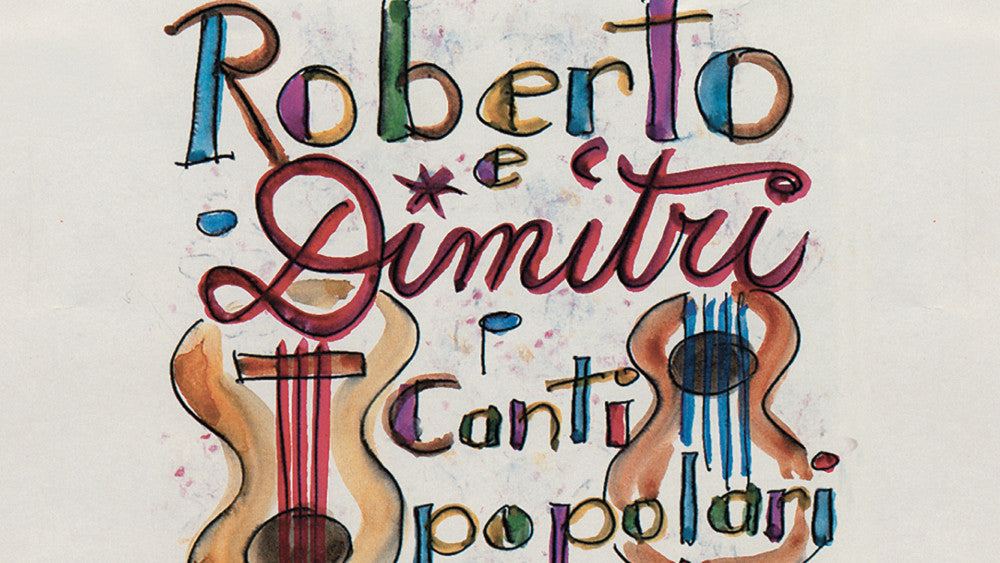 Roberto
e
Dimitri
Canti
popolari